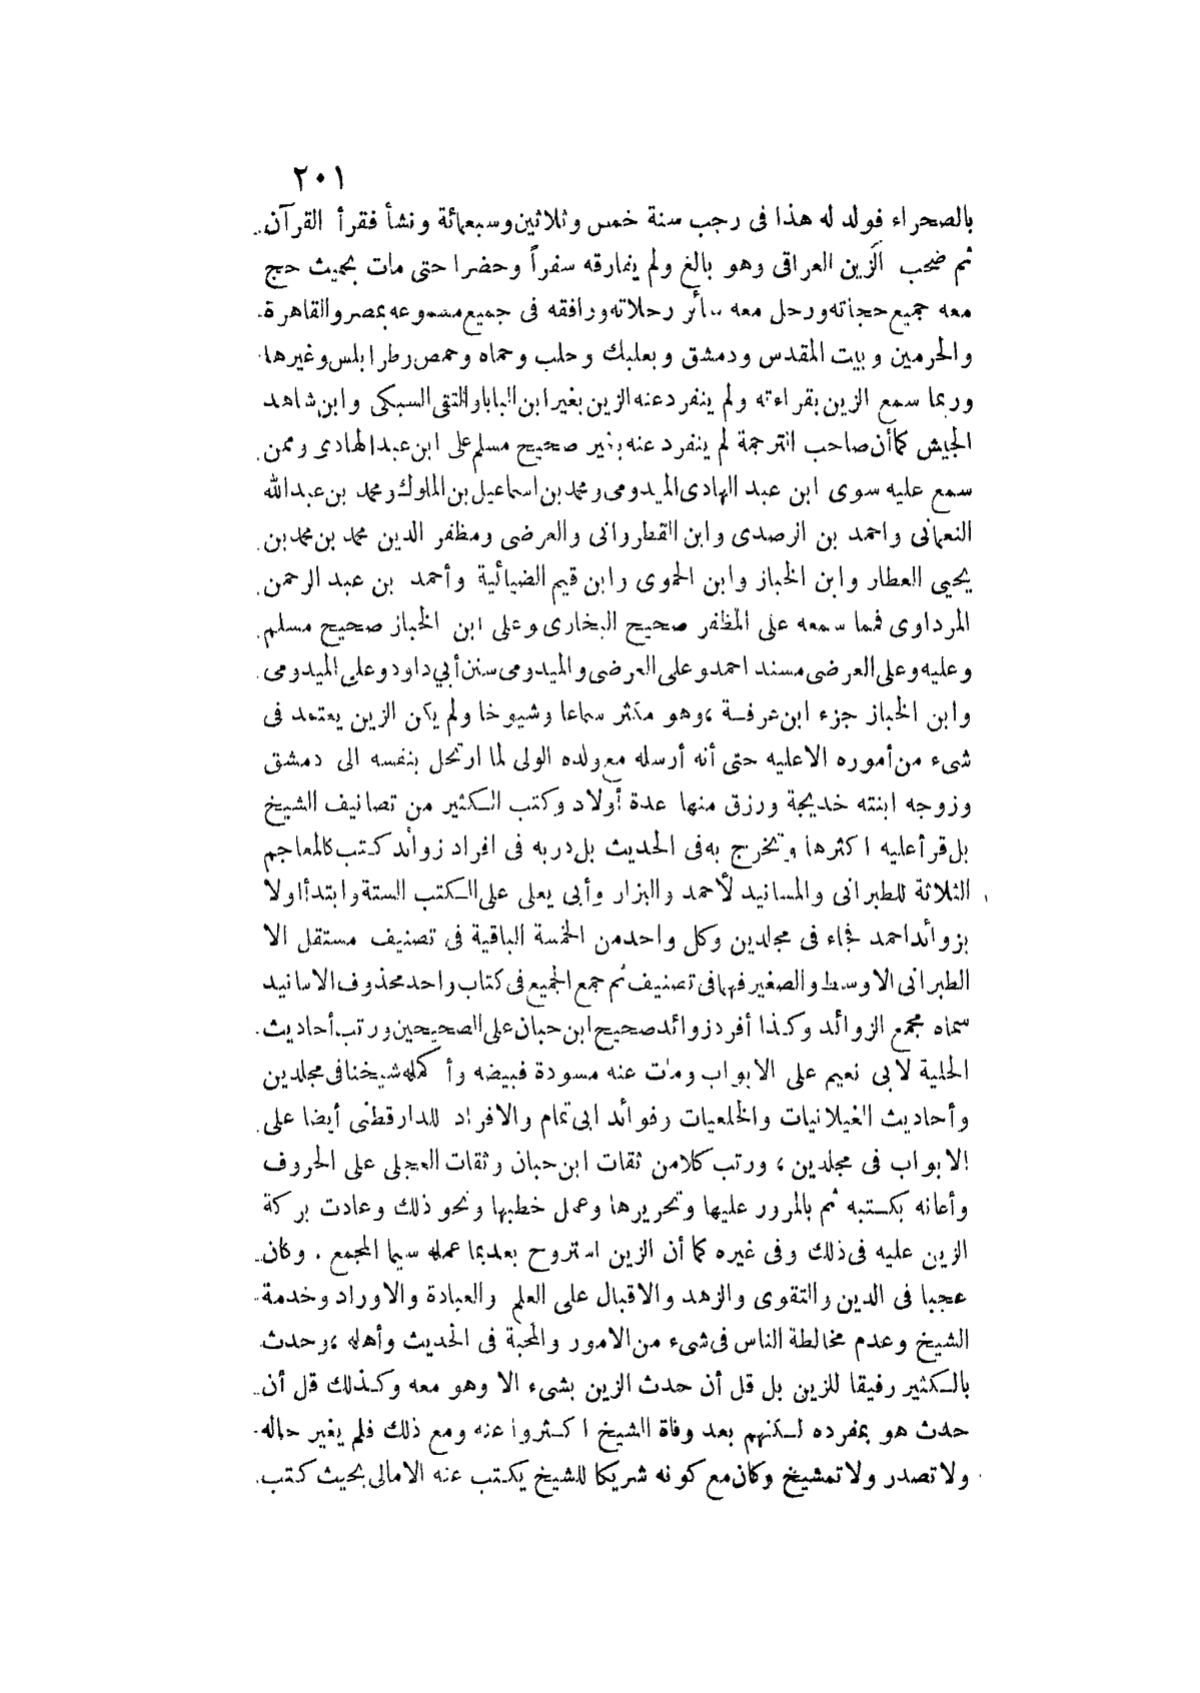 ٢٠١
بالصحراء فولد له هذا فى رجب سنة خمس وثلاثين وسبعمائة ونشأ فقرأ القرآن
ثم صحب الزين العراقى وهو بالغ ولم يفارقه سفراً وحضرا حتى مات بحيث حج
معه جميع حجاته ورحل معه سائر رحلاته ورافقه فى جميع مسموعه بمصر والقاهرة
والحرمين وبيت المقدس ودمشق وبعلبك وحلب وحماه وحمص وطرابلس وغيرها
وربما سمع الزين بقراءته ولم ينفرد عنه الزين بغير ابن البابا والتقى السبكى وابن شاهد
الجيش كما أن صاحب الترجمة لم ينفرد عنه بغير صحيح مسلم على ابن عبد الهادى وممن
سمع عليه سوى ابن عبد الهادى الميدومى ومحمد بن اسماعيل بن الملوك ومحمد بن عبد الله
النعمانى واحمد بن الرصدى وابن القطروانى والعرضى ومظفر الدين محمد بن محمد بن
يحيى العطار وابن الخباز وابن الحموى وابن قيم الضيائية وأحمد بن عبد الرحمن
المرداوى فمما سمعه على المظفر صحيح البخارى وعلى ابن الخباز صحيح مسلم
وعليه وعلى العرضى مسند احمد وعلى العرضى والميدومى سنن أبي داود وعلى الميدومى
وابن الخباز جزء ابن عرفة ، وهو مكثر سماعا وشيوخا ولم يكن الزين يعتمد فى
شىء من أموره الا عليه حتى أنه أرسله مع ولده الولى لما ارتحل بنفسه الى دمشق
وزوجه ابنته خديجة ورزق منها عدة أولاد وكتب الكثير من تصانيف الشيخ
بل قرأ عليه اكثرها وتخرج به فى الحديث بل دربه فى افراد زوائد كتب كالمعاجم
الثلاثة للطبرانى والمسانيد لأحمد والبزار وأبى يعلى على الكتب الستة وابتدأ اولا
بزوائد احمد فجاء فى مجلدين وكل واحد من الخمسة الباقية فى تصنيف مستقل الا
الطبرانى الاوسط والصغير فهما فى تصنيف ثم جمع الجميع فى كتاب واحد محذوف الاسانيد
سماه مجمع الزوائد وكذا أفرد زوائد صحيح ابن حبان على الصحيحين ورتب أحاديث
الحلية لابى نعيم على الابواب ومات عنه مسودة فبيضه وأكمله شيخنا فى مجلدين
وأحاديث الغيلانيات والخلعيات وفوائد ابى تمام والافراد للدارقطنى أيضا على
الابواب فى مجلدين ، ورتب كلا من ثقات ابن حبان وثقات العجلى على الحروف
وأعانه بكتبه ثم بالمرور عليها وتحريرها وعمل خطبها ونحو ذلك وعادت بركة
الزين عليه فى ذلك وفى غيره كما أن الزين استروح بعد بما عمله سيما المجمع . وكان
عجبا فى الدين والتقوى والزهد والاقبال على العلم والعبادة والاوراد وخدمة
الشيخ وعدم مخالطة الناس فى شىء من الامور والمحبة فى الحديث وأهله ، وحدث
بالكثير رفيقا للزين بل قل أن حدث الزين بشىء الا وهو معه وكذلك قل أن
حدث هو بمفرده لكنهم بعد وفاة الشيخ اكثروا عنه ومع ذلك فلم يغير حاله
ولا تصدر ولا تمشيخ وكان مع كونه شريكا للشيخ يكتب عنه الامالى بحيث كتب